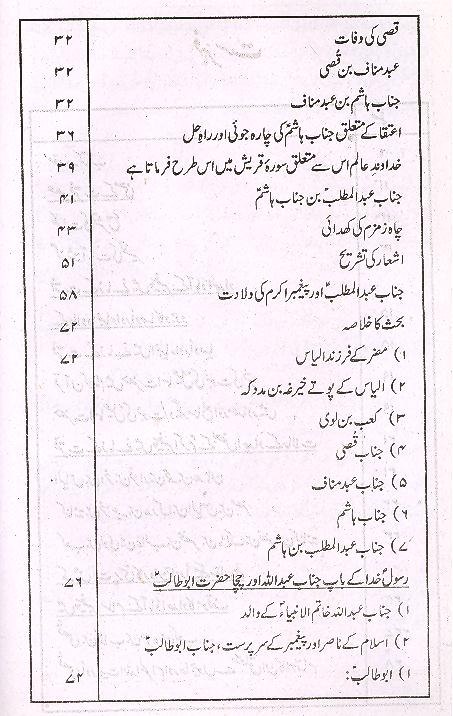 قصی کی وفات ۳۲
عبد مناف بن قُصی ۳۲
جناب ہاشم بن عبد مناف ۳۲
اعتقاد کے متعلق جناب ہاشمؑ کی چارہ جوئی اور راہِ حل ۳۶
خداوندِ عالم اس سے متعلق سورۂ قریش میں اس طرح فرماتا ہے ۳۹
جناب عبد المطلبؑ بن جناب ہاشمؑ ۴۱
چاہ زمزم کی کھدائی ۴۳
اشعار کی تشریح ۵۱
جناب عبد المطلبؑ اور پیغمبر اکرم کی ولادت ۵۸
بحث کا خلاصہ ۷۲
۱) مضر کے فرزند الیاس ۷۲
۲) الیاس کے پوتے خیزغہ بن مدوکہ
۳) کعب بن لوی
۴) جناب قُصی
۵) جناب عبد مناف
۶) جناب ہاشم
۷) جناب عبد المطلب بن ہاشم
رسولؐ خدا کے باپ جناب عبد اللہ اور چچا حضرت ابو طالبؑ ۷۶
۱) جناب عبد اللہ خاتم الانبیاءؐ کے والد
۲) اسلام کے ناصر اور پیغمبرؐ کے سرپرست، جناب ابو طالبؑ
۱) ابو طالبؑ: ۷۲